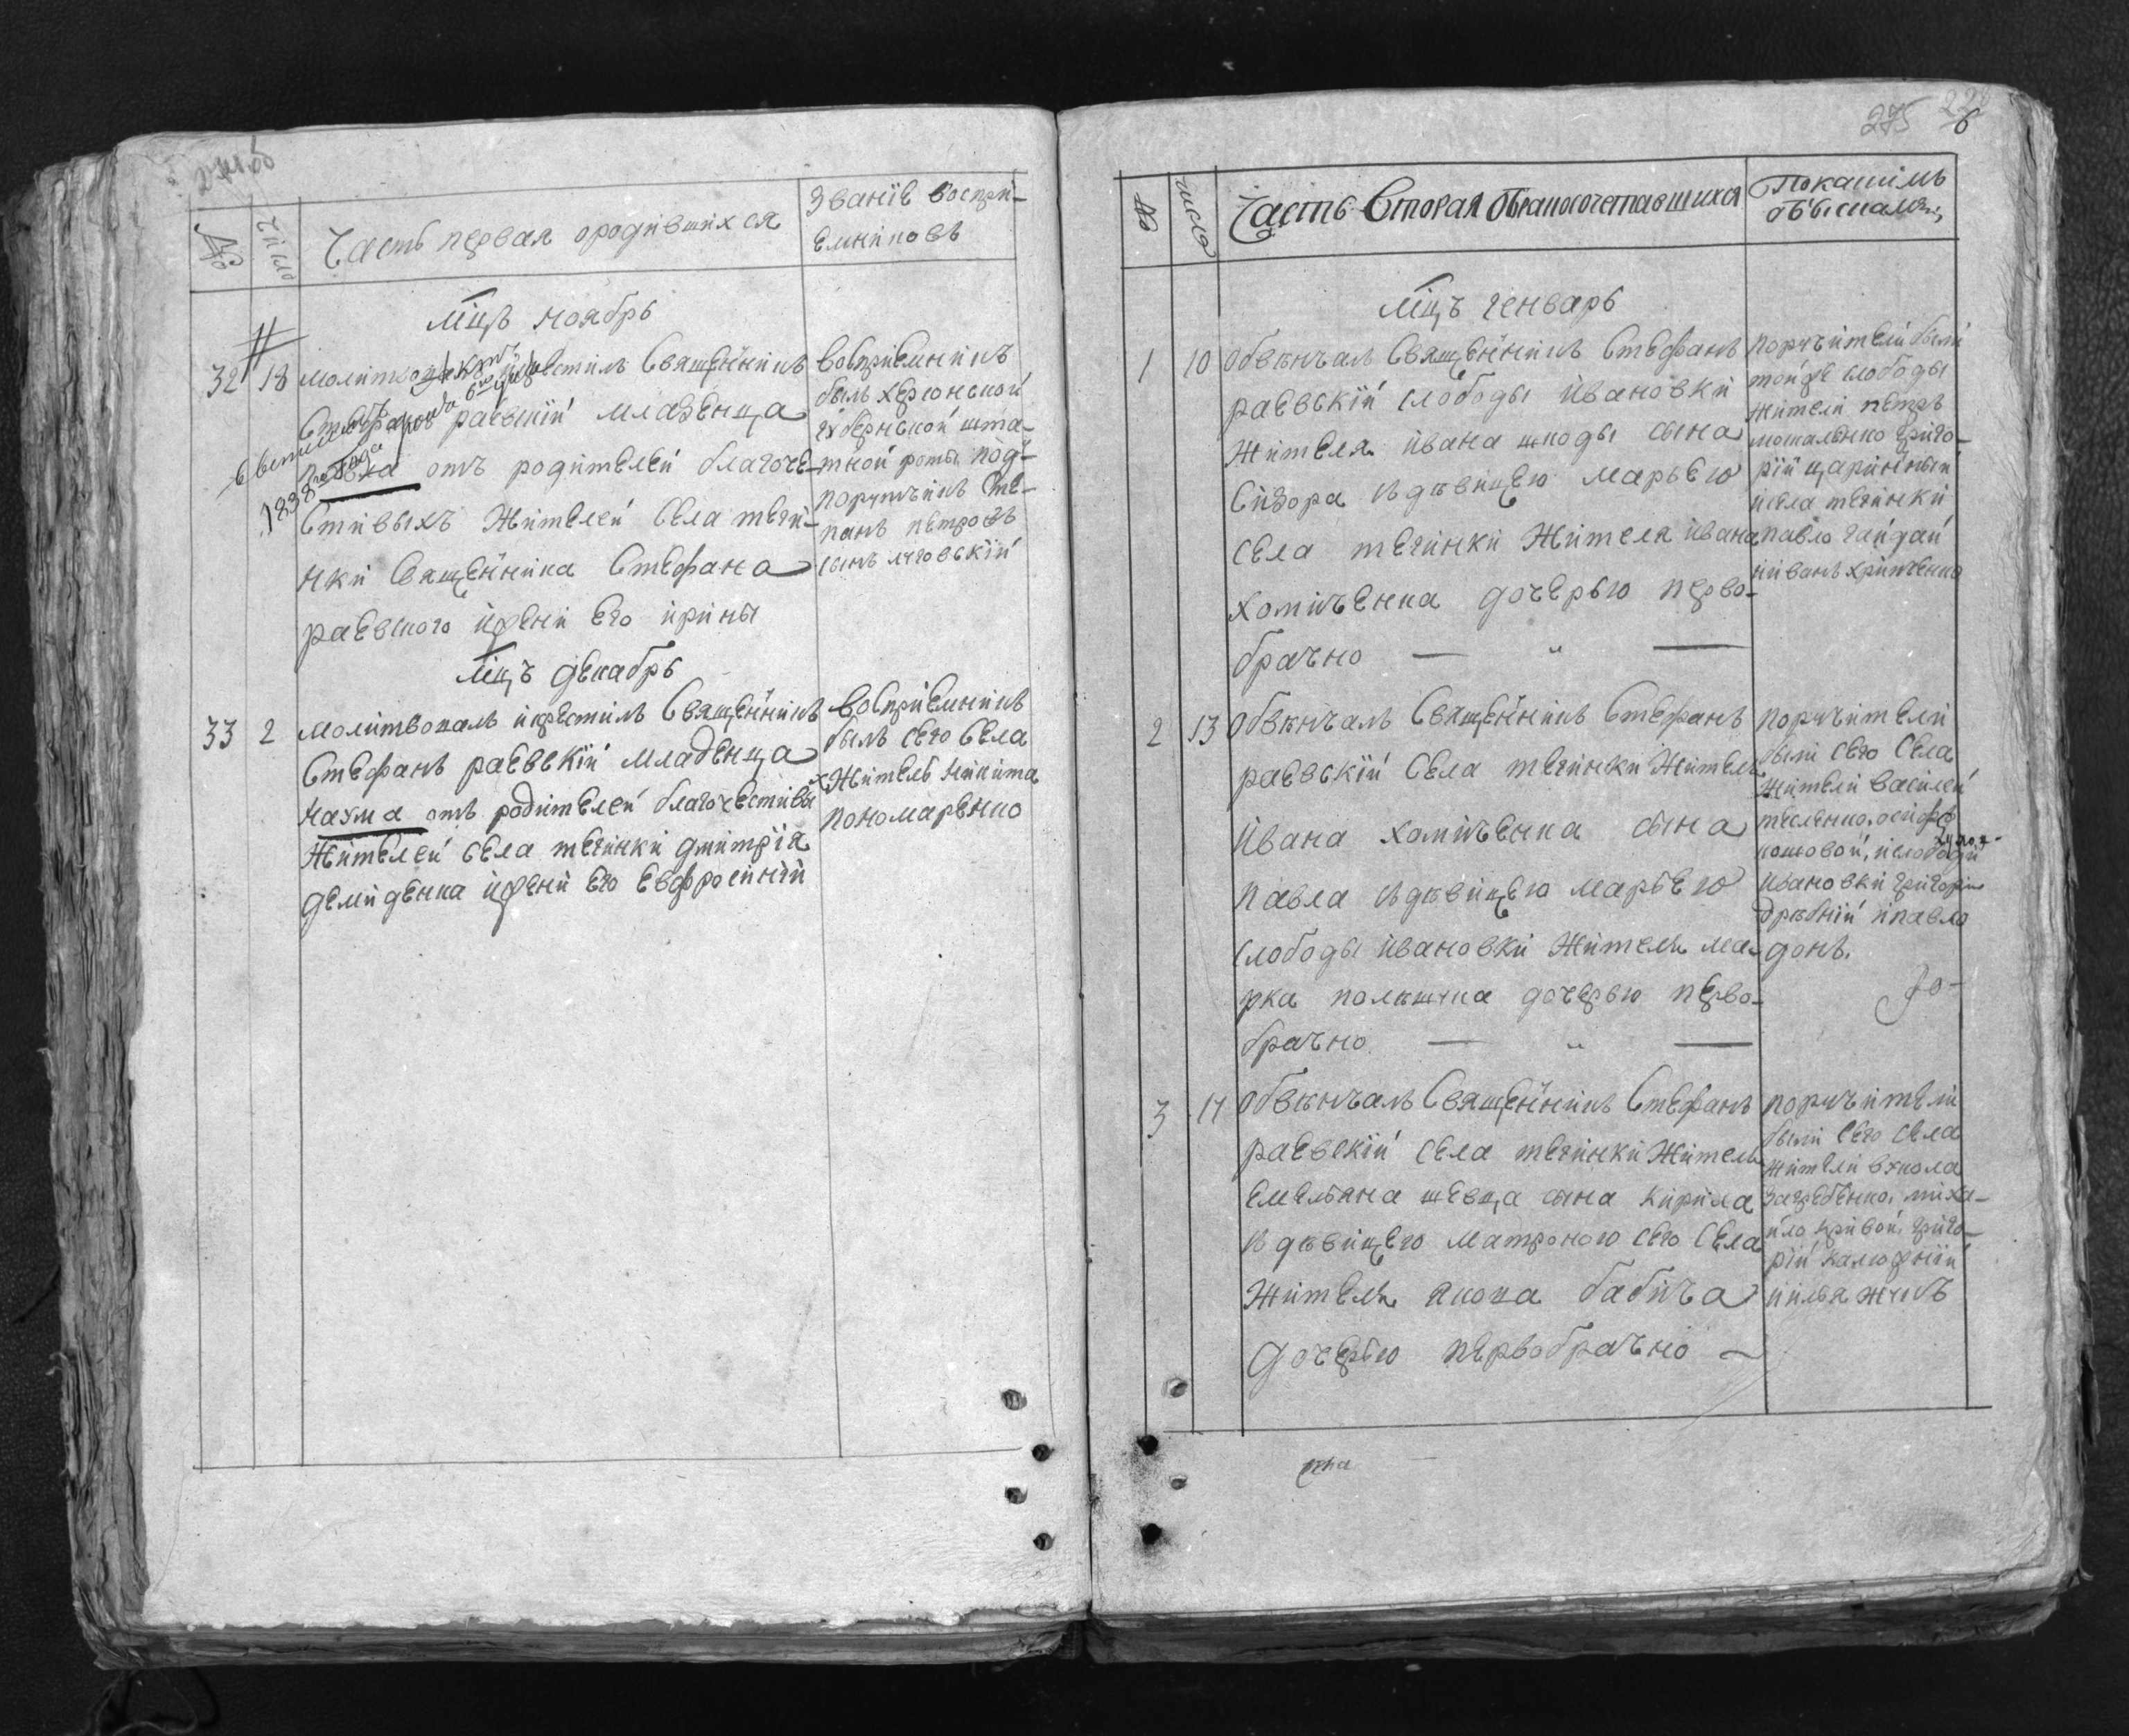 №
Число
Часть первая ородившихся
Званїе воспрї-
емниковъ
Мцъ ноябрь
32 18 молитвовалъ икрестилъ Священникъ
Стефанъ раевскїй младенца
отъ родителей благоче-
стивыхъ жителей села теги-
нки Священника Стефана
раевского ижени его ирины
1838го года
воспрїемникъ
былъ херсонской
губернской шта-
тной роты под-
порутчикъ сте-
панъ петровъ
сынъ
Мцъ декабрь
33 2 молитвовалъ икрестилъ Священникъ
Стефанъ раевскїй младенца
наума отъ родителей благочестивы
х
жителей села тегинки дмитрїя
демиденка ижени его евфросинїи
воспрїемникъ
былъ сего села
житель никита
пономаренко
275
№
число
Часть Вторая обракосочетавшихся
Покакимъ
обыскамъ
Мцъ генварь
1 10 обвѣнчалъ Священникъ Стефанъ
раевскїй слободы ивановки
жителя ивана шкоды сына
Сидора здѣвицею марьею
села тегинки жителя ивана
хомиченка дочерью перво-
брачно — „ —
поручители были
тойже слободы
жители петръ
москаленко григо-
рїй
исела тегинки
павло гайдай
ииванъ хриченко
2 13 обвѣнчалъ Священникъ Стефанъ
раевскїй села тегинки жителя
ивана хомиченка сына
павла здѣвицею марьею
слободы ивановки жителя ма-
рка полишка дочерью перво-
брачно — „ —
поручители
были сего села
жители василей
тесленко, осифъ
кошовой, ислободи
ивановки григорїй
дрѣбнїй ипавло
донъ.
3 17 обвѣнчалъ Священникъ Стефанъ
раевскїй села тегинки жителя
емельяна шевца сына кирила
здѣвицею матроною сего села
жителя якова бабича
дочерью первобрачно —
поручители
были сего села
жители вукола
загребенко, миха-
йло кривой, григо-
рїй калюжнїй
иилья